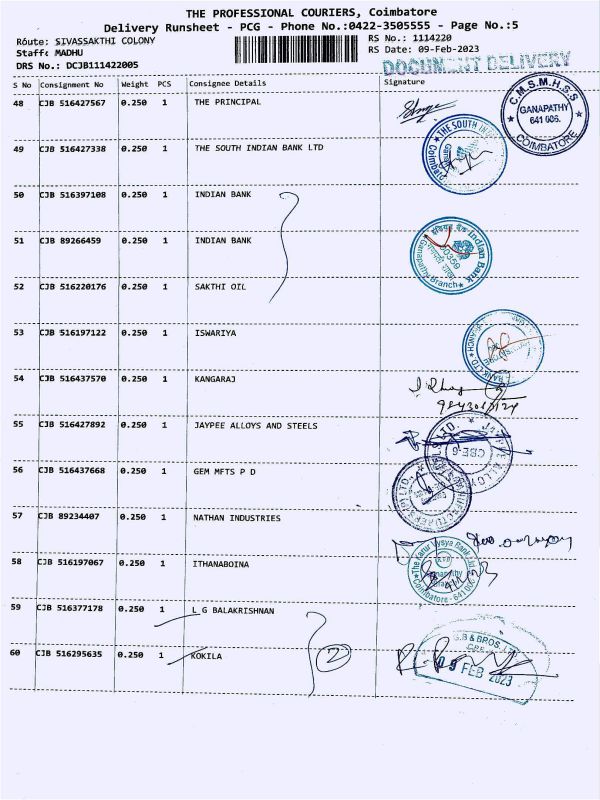 THE PROFESSIONAL COURIERS, Coimbatore
Delivery Runsheet - PCG - Phone No.:0422-3505555 - Page No.:5
Route: SIVASSAKTHI COLONY
RS No.: 1114220
Staff: MADHU
RS Date: 09-Feb-2023
DRS No.: DCJB111422005
DOCUMENT DELIVERY
S No Consignment No Weight PCS Consignee Details Signature
48 CJB 516427567 0.250 1 THE PRINCIPAL
C.M.S.M.H.S.S
GANAPATHY
641 006.
COIMBATORE
49 CJB 516427338 0.250 1 THE SOUTH INDIAN BANK LTD
THE SOUTH IN
50 CJB 516397108 0.250 1 INDIAN BANK
51 CJB 89266459 0.250 1 INDIAN BANK
Indian Bank
Ganapathy Branch
52 CJB 516220176 0.250 1 SAKTHI OIL
53 CJB 516197122 0.250 1 ISWARIYA
54 CJB 516437570 0.250 1 KANGARAJ
55 CJB 516427892 0.250 1 JAYPEE ALLOYS AND STEELS
CBE-6
56 CJB 516437668 0.250 1 GEM MFTS P D
57 CJB 89234407 0.250 1 NATHAN INDUSTRIES
58 CJB 516197067 0.250 1 ITHANABOINA
The Karur Vysya Bank Ltd
Coimbatore - 641 006
59 CJB 516377178 0.250 1 L G BALAKRISHNAN
60 CJB 516295635 0.250 1 KOKILA
2
G.B & BROS. LT
09 FEB 2023